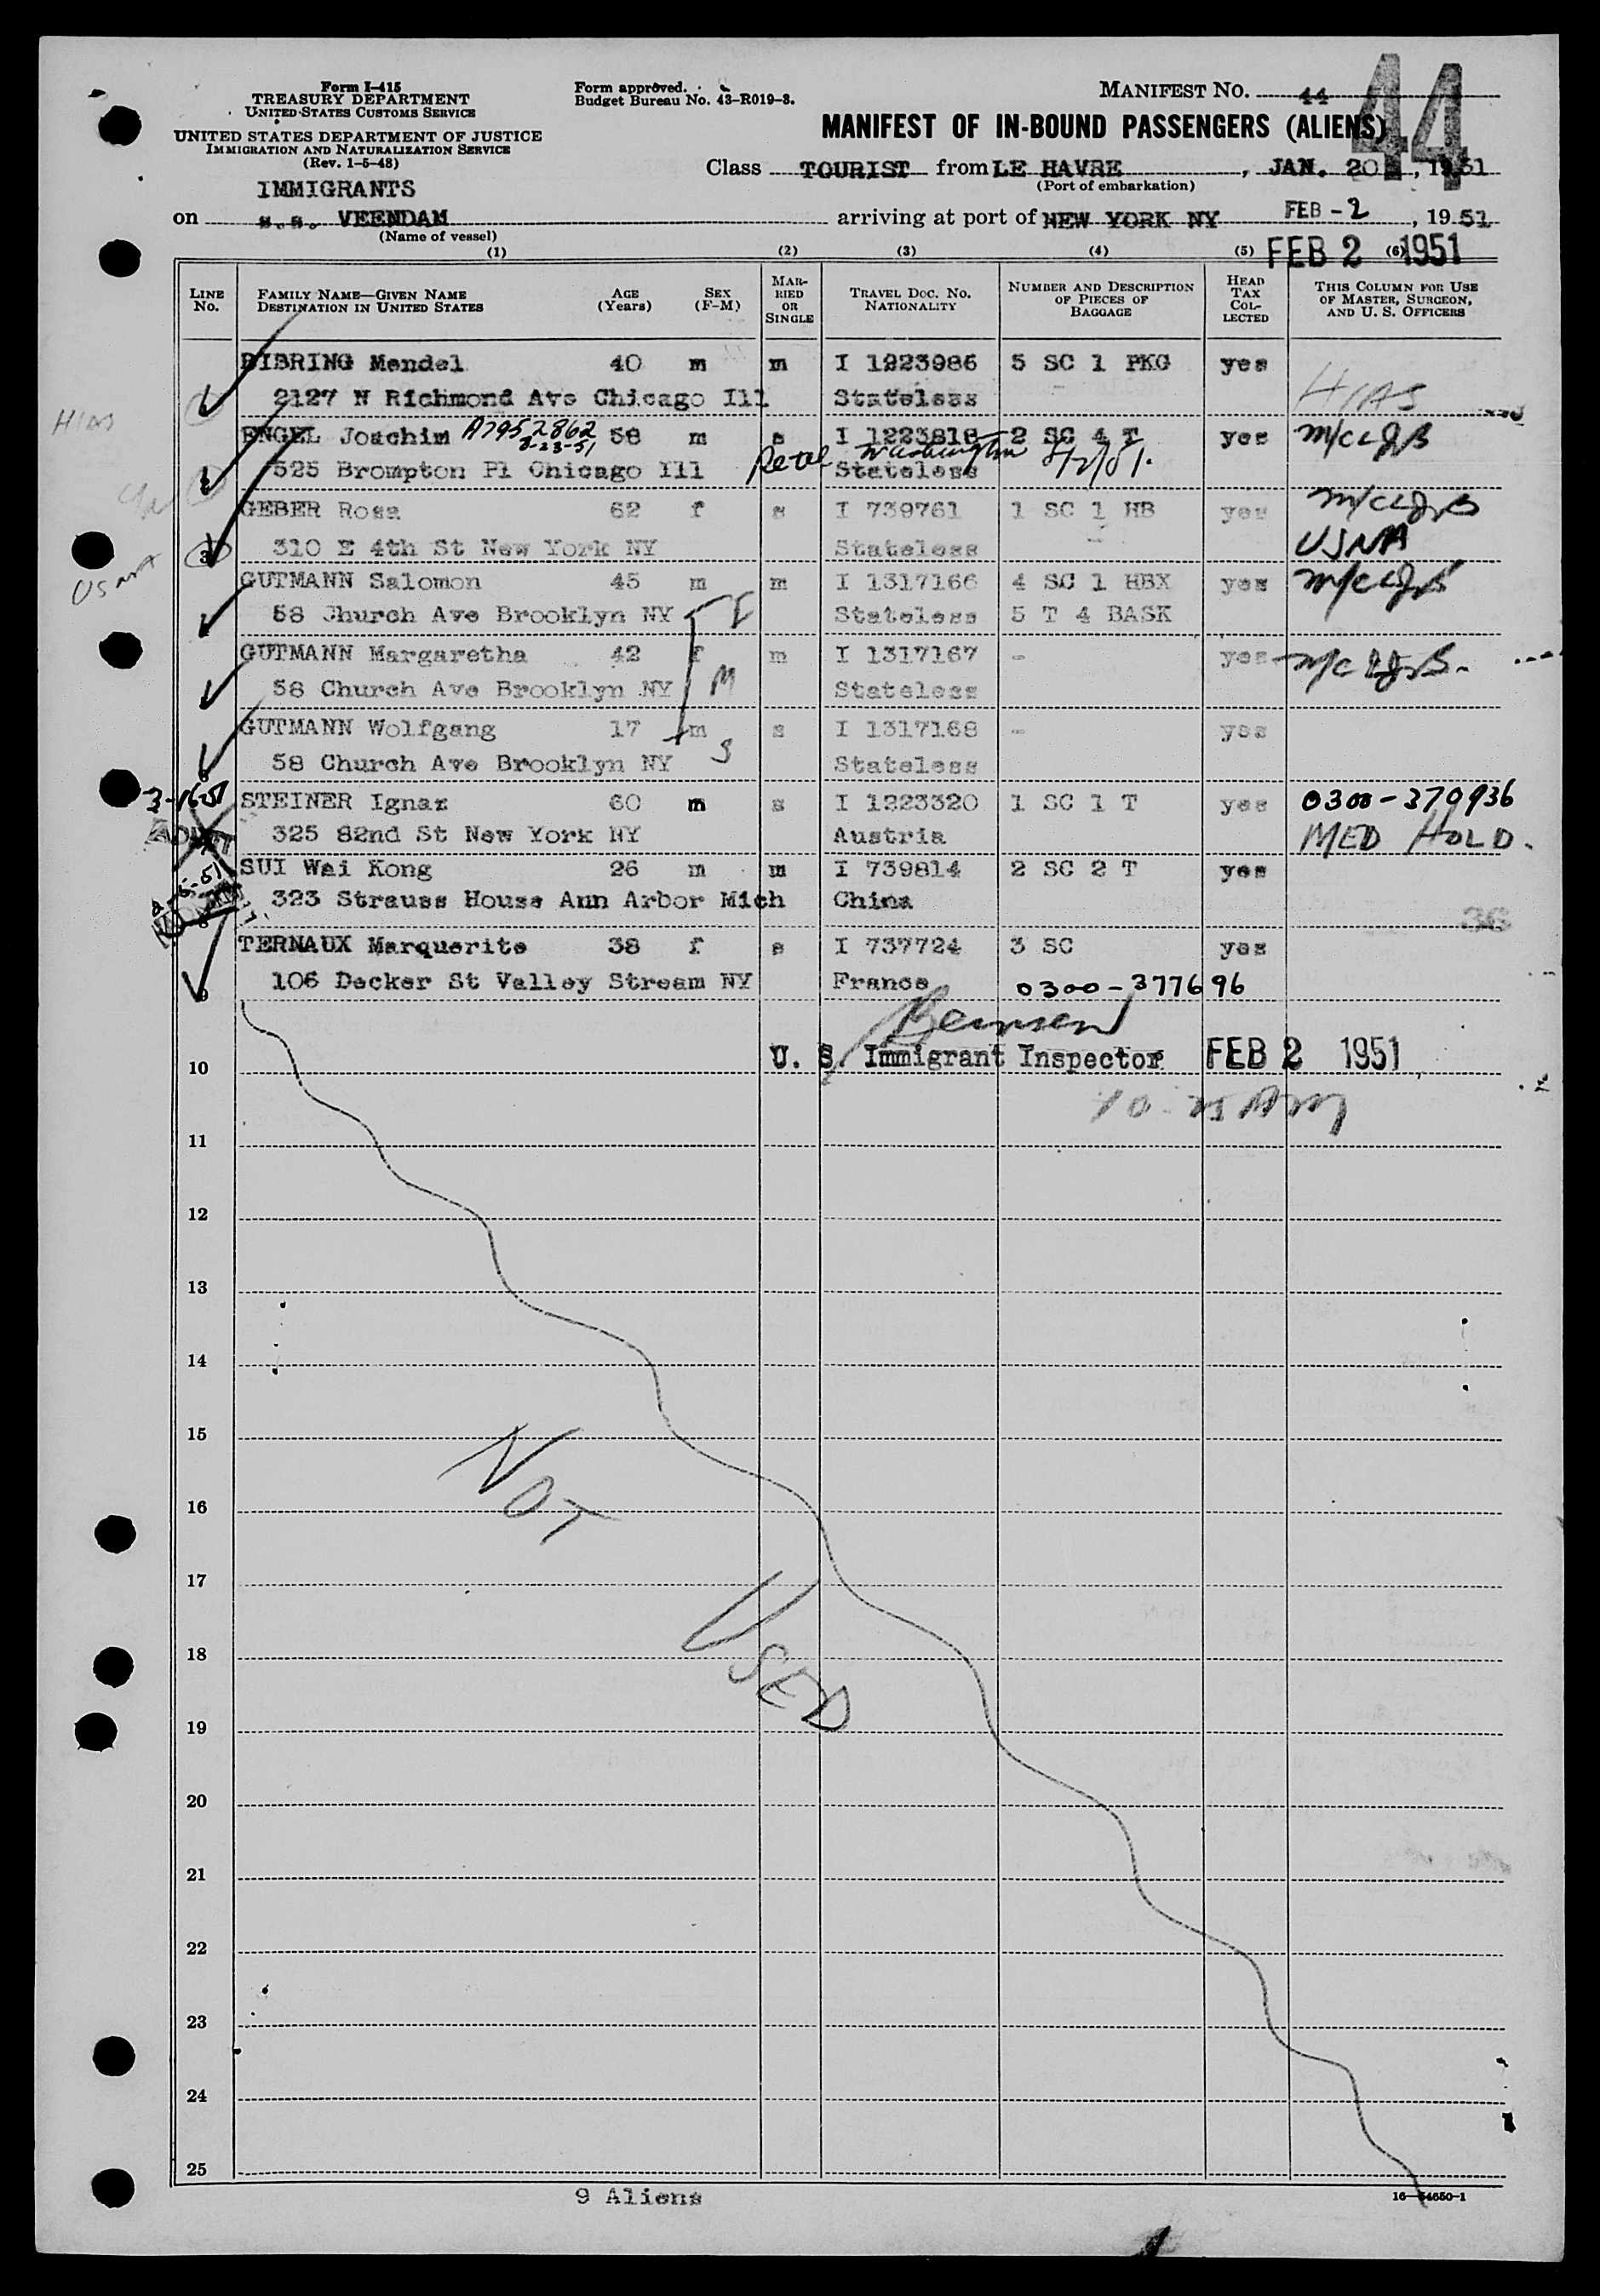 Form I-415
TREASURY DEPARTMENT
UNITED STATES CUSTOMS SERVICE
UNITED STATES DEPARTMENT OF JUSTICE
IMMIGRATION AND NATURALIZATION SERVICE
(Rev. 1-5-48)
Form approved.
Budget Bureau No. 43-R019-3.
MANIFEST NO. 44
44
MANIFEST OF IN-BOUND PASSENGERS (ALIENS)
Class TOURIST from LE HAVRE, JAN. 20, 1951
(Port of embarkation)
IMMIGRANTS
on s.s. VEENDAM arriving at port of NEW YORK NY FEB-2, 1951
(Name of vessel)
FEB 2 1951
(1) (2) (3) (4) (5) (6)
LINE No. FAMILY NAME—GIVEN NAME DESTINATION IN UNITED STATES AGE (Years) SEX (F-M) MARRIED OR SINGLE TRAVEL DOC. NO. NATIONALITY NUMBER AND DESCRIPTION OF PIECES OF BAGGAGE HEAD TAX COLLECTED THIS COLUMN FOR USE OF MASTER, SURGEON, AND U. S. OFFICERS
BIBRING Mendel 40 m m I 1223986 5 SC 1 PKG yes
2127 N Richmond Ave Chicago Ill Stateless HIAS
HIAS
ENGEL Joachim A7952862 58 m s I 1223818 2 SC 4 T yes
8-23-51
525 Brompton Pl Chicago Ill Stateless
Washington
GEBER Rosa 62 f s I 739761 1 SC 1 HB yes
3 310 E 4th St New York NY Stateless USNA
USNA
GUTMANN Salomon 45 m m I 1317166 4 SC 1 HBX yes
58 Church Ave Brooklyn NY Stateless 5 T 4 BASK
GUTMANN Margaretha 42 f m I 1317167 - yes
58 Church Ave Brooklyn NY M Stateless
GUTMANN Wolfgang 17 m s I 1317168 - yes
58 Church Ave Brooklyn NY S Stateless
3-16-51 STEINER Ignaz 60 m s I 1223320 1 SC 1 T yes 0300-370936
325 82nd St New York NY Austria MED HOLD.
SUI Wai Kong 26 m m I 739814 2 SC 2 T yes
323 Strauss House Ann Arbor Mich China
36
TERNAUX Marguerite 38 f s I 737724 3 SC yes
9 106 Decker St Valley Stream NY France 0300-377696
U. S. Immigrant Inspector FEB 2 1951
10
11
12
13
14
15
NOT
16
17
USED
18
19
20
21
22
23
24
25
9 Aliens
16—54650-1